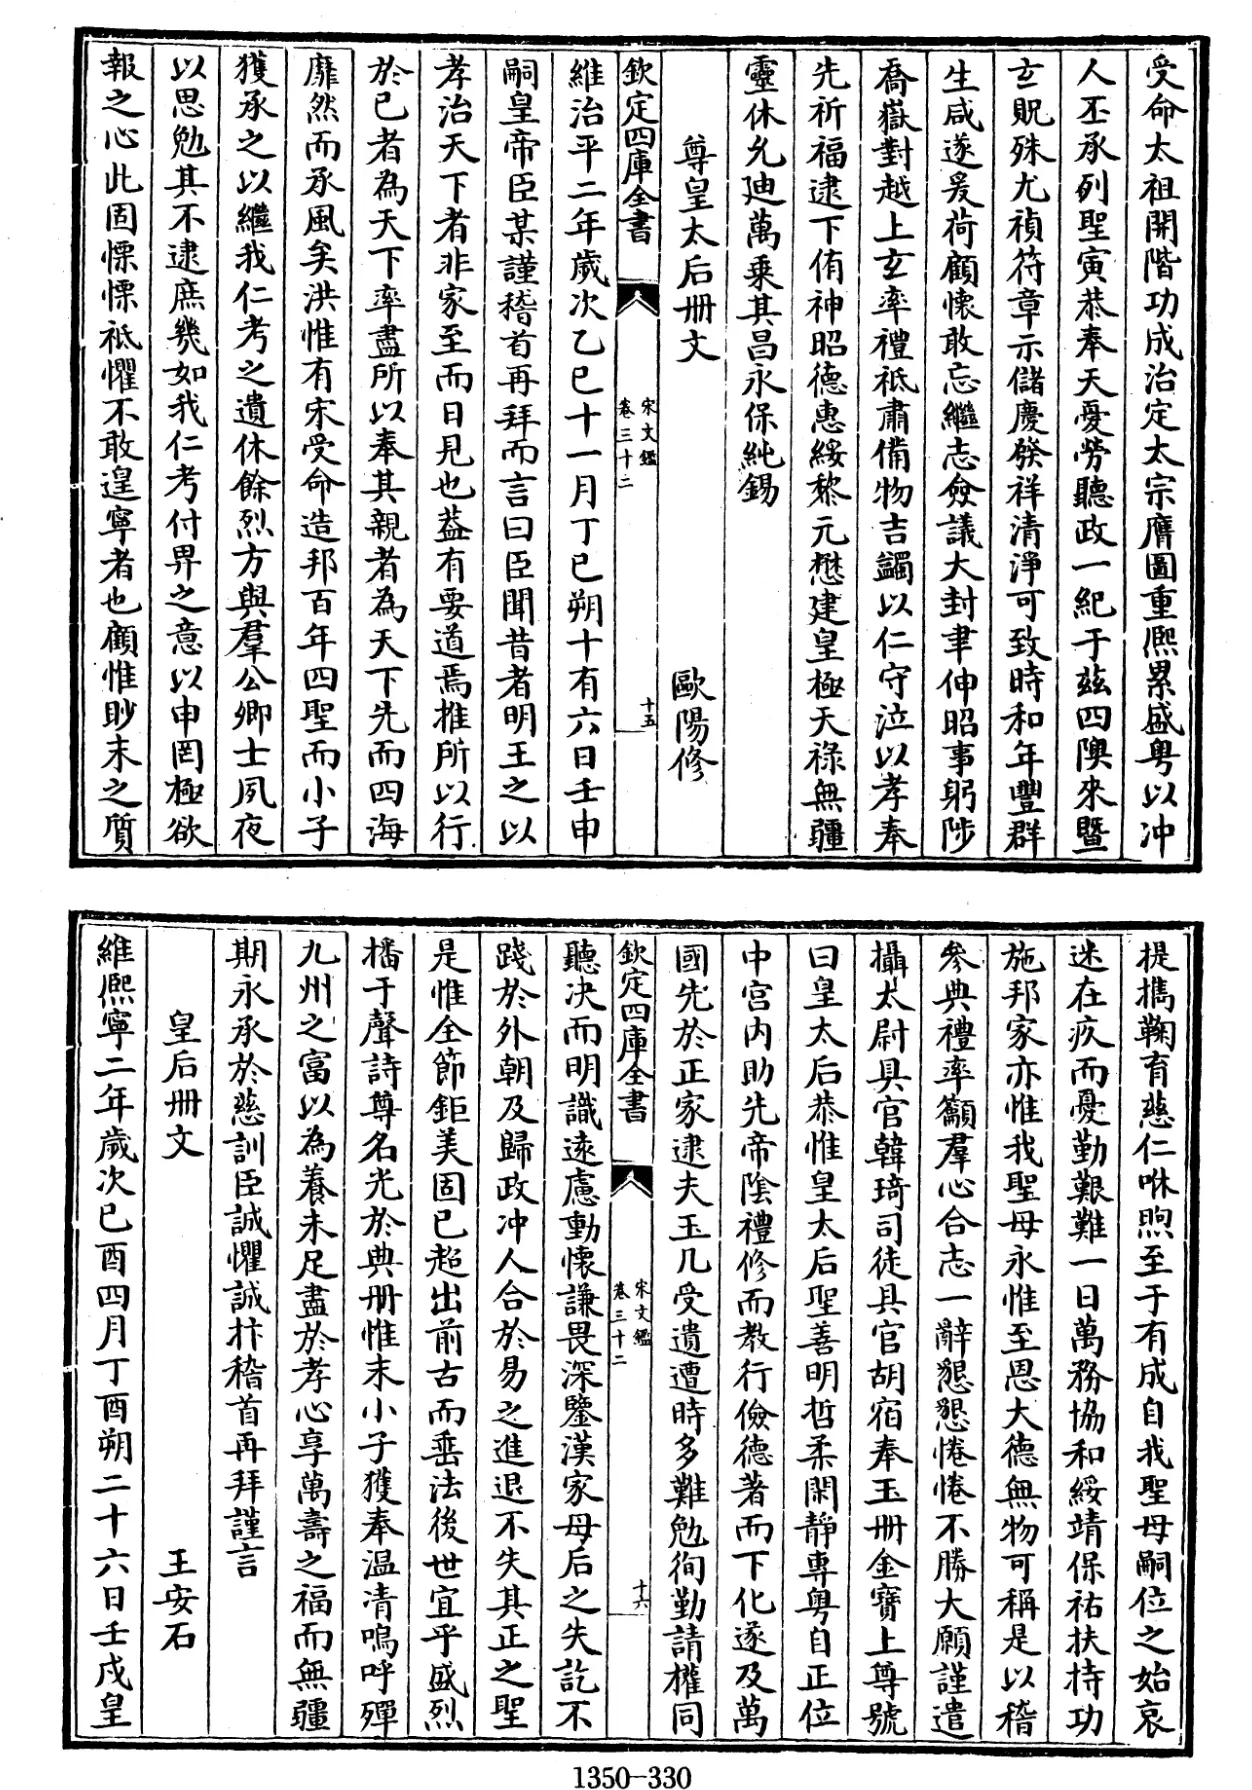 受命太祖開階功成治定太宗膺圖重熈累盛粤以冲
人丕承列聖寅恭奉天憂勞聽政一紀于兹四隩來暨
玄貺殊尤禎符章示儲慶發祥清淨可致時和年豐群
生咸遂爰荷顧懐敢忘繼志僉議大封聿伸昭事躬陟
喬嶽對越上玄率禮祇肅備物吉蠲以仁守泣以孝奉
先祈福逮下侑神昭德惠綏黎元懋建皇極天祿無疆
靈休允廸萬乗其昌永保純錫
尊皇太后冊文
歐陽修
欽定四庫全書
宋文鑑
卷三十二
十五
維治平二年歲次乙巳十一月丁巳朔十有六日壬申
嗣皇帝臣某謹稽首再拜而言曰臣聞昔者明王之以
孝治天下者非家至而日見也葢有要道焉推所以行
於已者為天下率盡所以奉其親者為天下先而四海
靡然而承風矣洪惟有宋受命造邦百年四聖而小子
獲承之以繼我仁考之遺休餘烈方與羣公卿士夙夜
以思勉其不逮庶幾如我仁考付畀之意以申罔極欲
報之心此固慄慄祇懼不敢遑寧者也顧惟眇末之質
提擕鞠育慈仁咻煦至于有成自我聖母嗣位之始哀
迷在疚而憂勤艱難一日萬務協和綏靖保祐扶持功
施邦家亦惟我聖母永惟至恩大德無物可稱是以稽
參典禮率籲羣心合志一辭懇懇惓惓不勝大願謹遣
攝太尉具官韓琦司徒具官胡宿奉玉冊金寶上尊號
曰皇太后恭惟皇太后聖善明哲柔閑靜專粤自正位
中宫内助先帝陰禮修而教行儉德著而下化遂及萬
國先於正家逮夫玉几受遺遭時多難勉徇勤請權同
欽定四庫全書
宋文鑑
卷三十二
十六
聽决而明識逺慮動懐謙畏深鑒漢家母后之失訖不
踐於外朝及歸政冲人合於易之進退不失其正之聖
是惟全節鉅美固已超出前古而垂法後世宜乎盛烈
播于聲詩尊名光於典冊惟末小子獲奉温凊嗚呼殫
九州之富以為養未足盡於孝心享萬壽之福而無疆
期永承於慈訓臣誠懼誠抃稽首再拜謹言
皇后冊文
王安石
維熈寧二年歲次已酉四月丁酉朔二十六日壬戍皇
1350—330